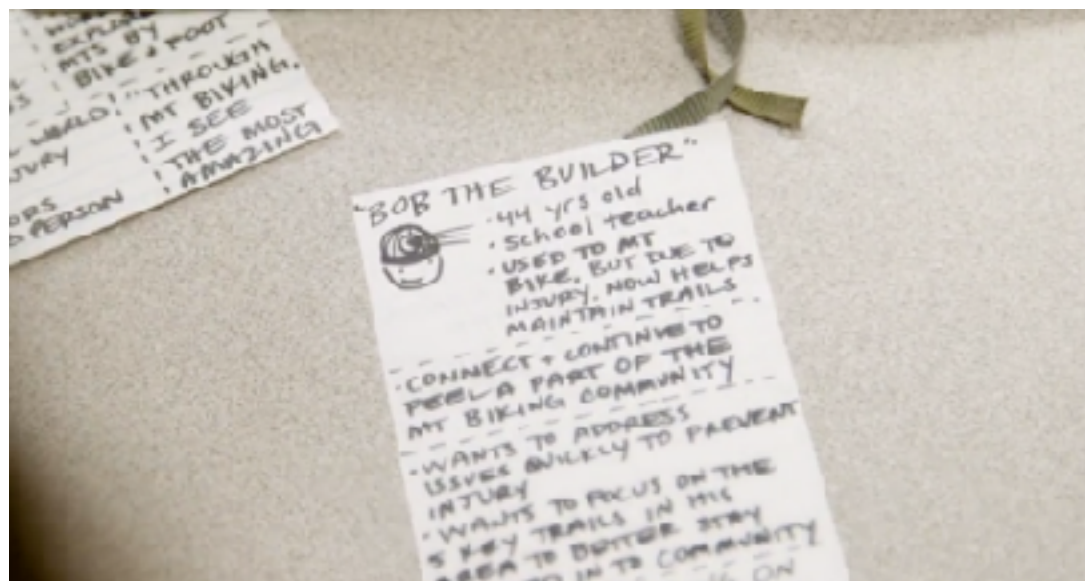 EXPLORE
MTS BY
BIKE + FOOT
"THROUGH
MT BIKING,
I SEE
THE MOST
AMAZING
WORLD!
INJURY
PERSON
"BOB THE BUILDER"
• 44 yrs old
• School teacher
• USED TO MT
BIKE, BUT DUE TO
INJURY, NOW HELPS
MAINTAIN TRAILS
• CONNECT + CONTINUE TO
FEEL A PART OF THE
MT BIKING COMMUNITY
• WANTS TO ADDRESS
ISSUES QUICKLY TO PREVENT
INJURY
• WANTS TO FOCUS ON THE
5 KEY TRAILS IN HIS
AREA TO BETTER STAY
IN TO COMMUNITY
ON